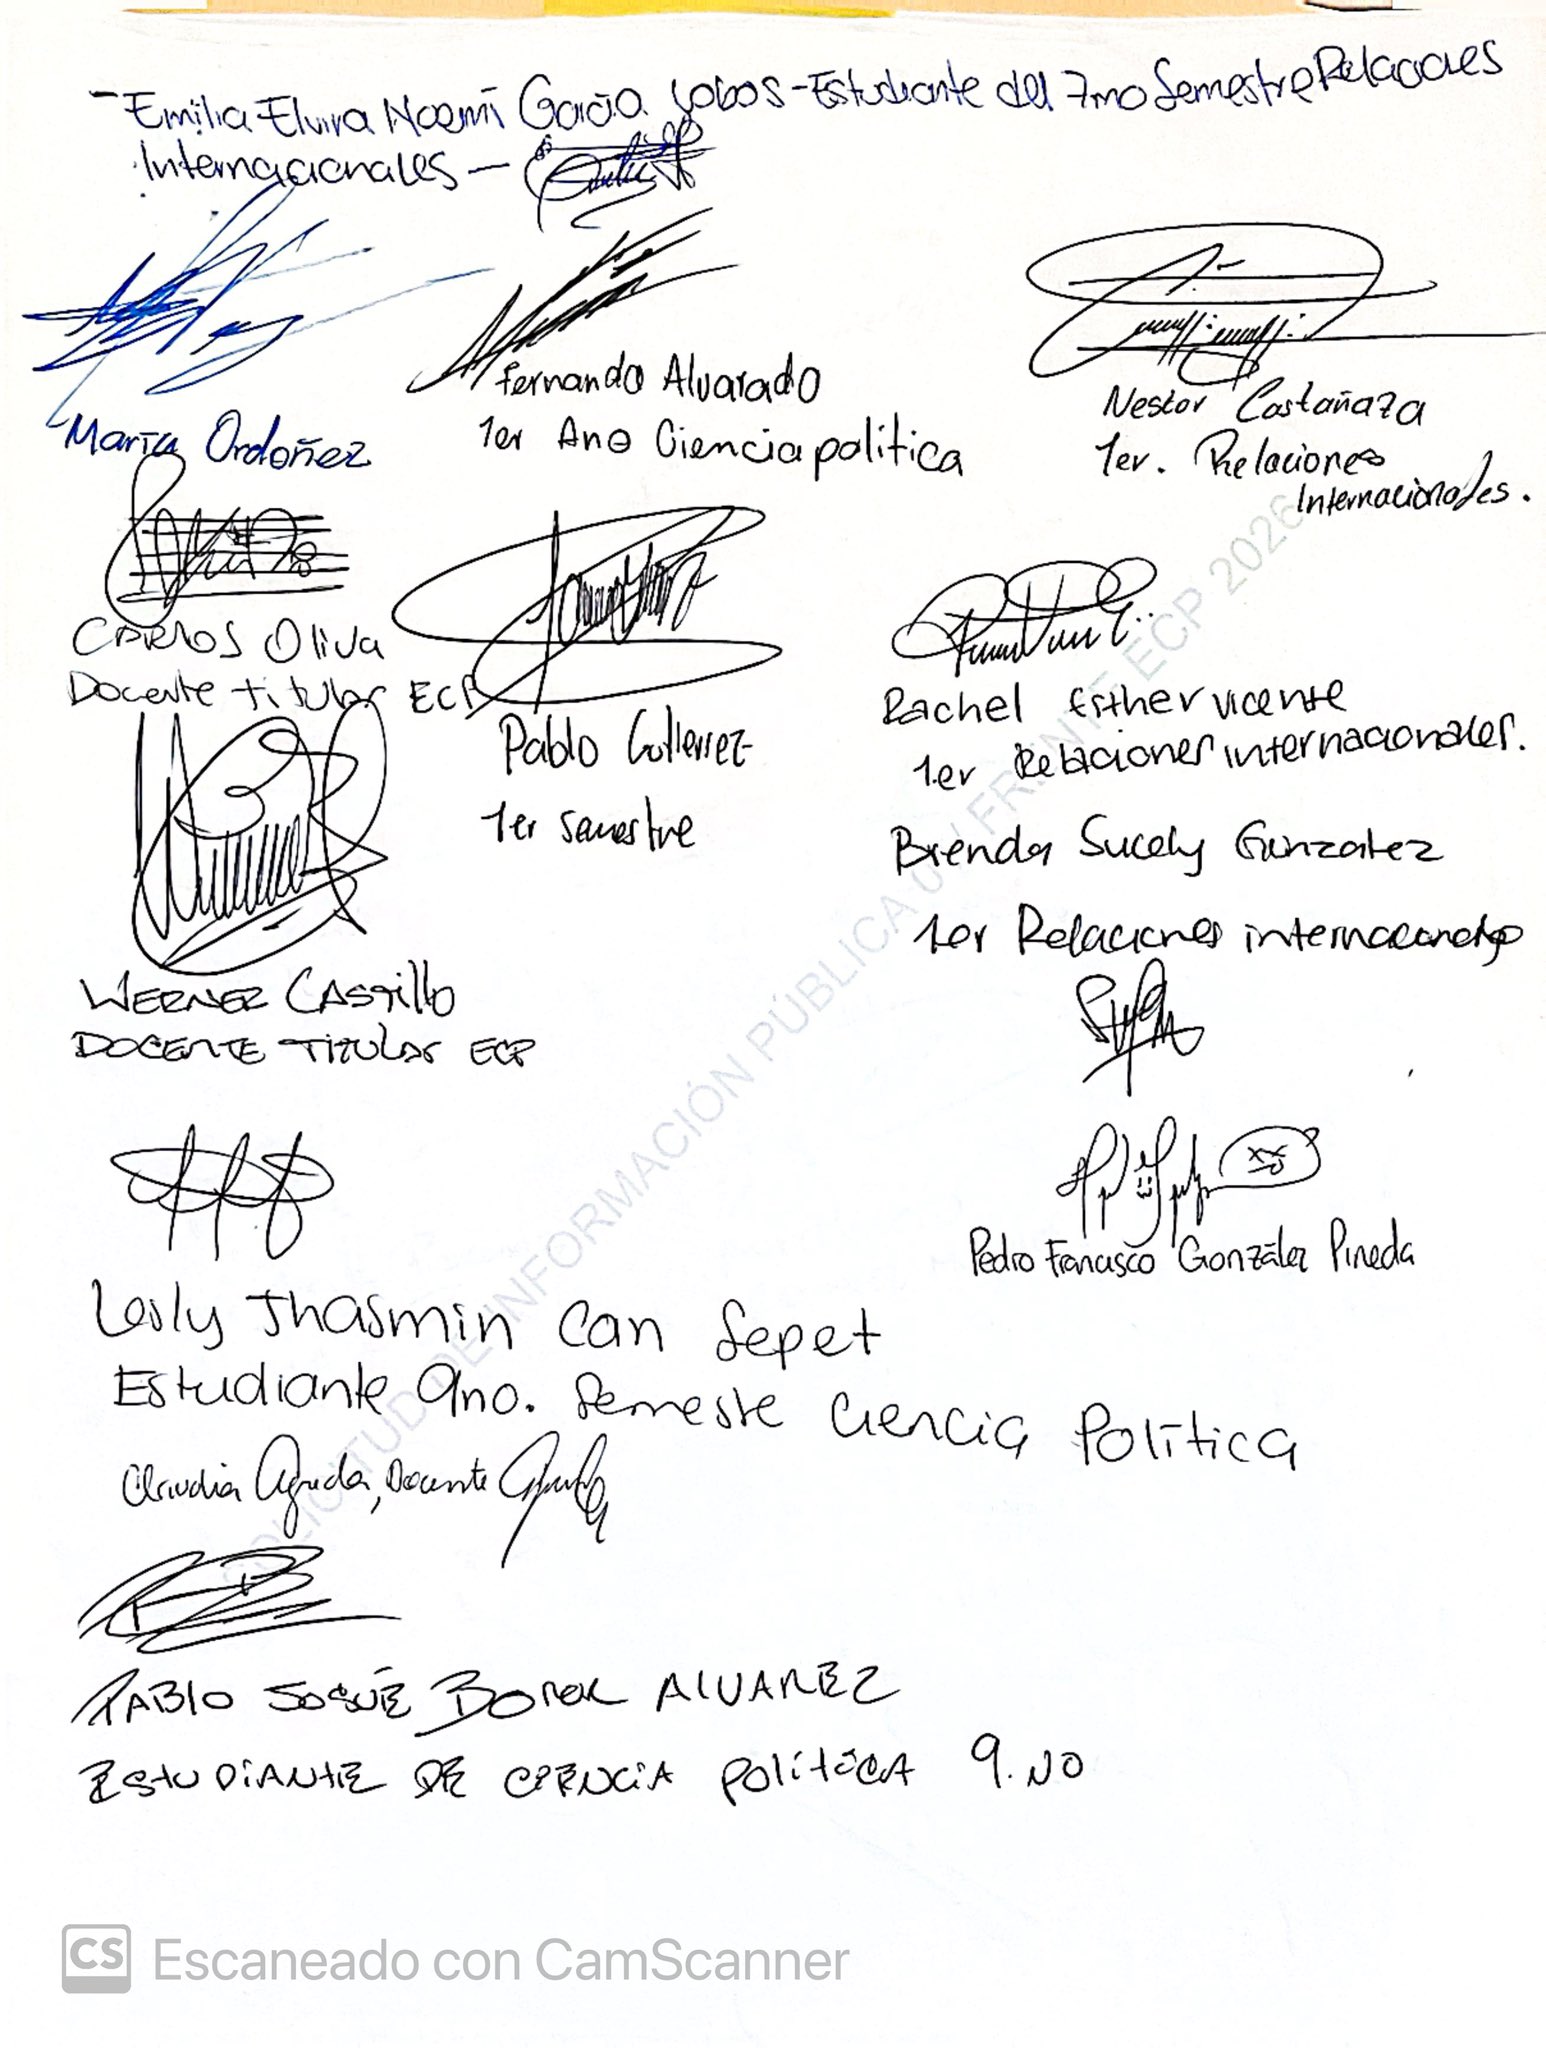 - Emilia Elvira Noemí García Lobos - Estudiante del 7mo Semestre Relaciones
Internacionales -
María Ordoñez
Fernando Alvarado
1er Año Ciencia política
Nestor Castañaza
1er. Relaciones
Internacionales.
CARlOS Oliva
Docente titular ECP
Pablo Gutierrez
1er semestre
Rachel Esther vicente
1er Relaciones internacionales.
Brenda Sucely Gonzalez
1er Relaciones internacionales
WERNER CASTillo
DOCENTE TITULAR ECP
Pedro Francisco González Pineda
Lesly Jhasmin Can Sepet
Estudiante 9no. Semestre Ciencia Política
Claudia Agreda, Docente
PABLO JOSUÉ BOROR ALVAREZ
ESTUDIANTE DE CIENCIA POLÍTICA 9.NO
SOLICITUD DE INFORMACIÓN PÚBLICA 01 FRENTE ECP 2026
CS Escaneado con CamScanner